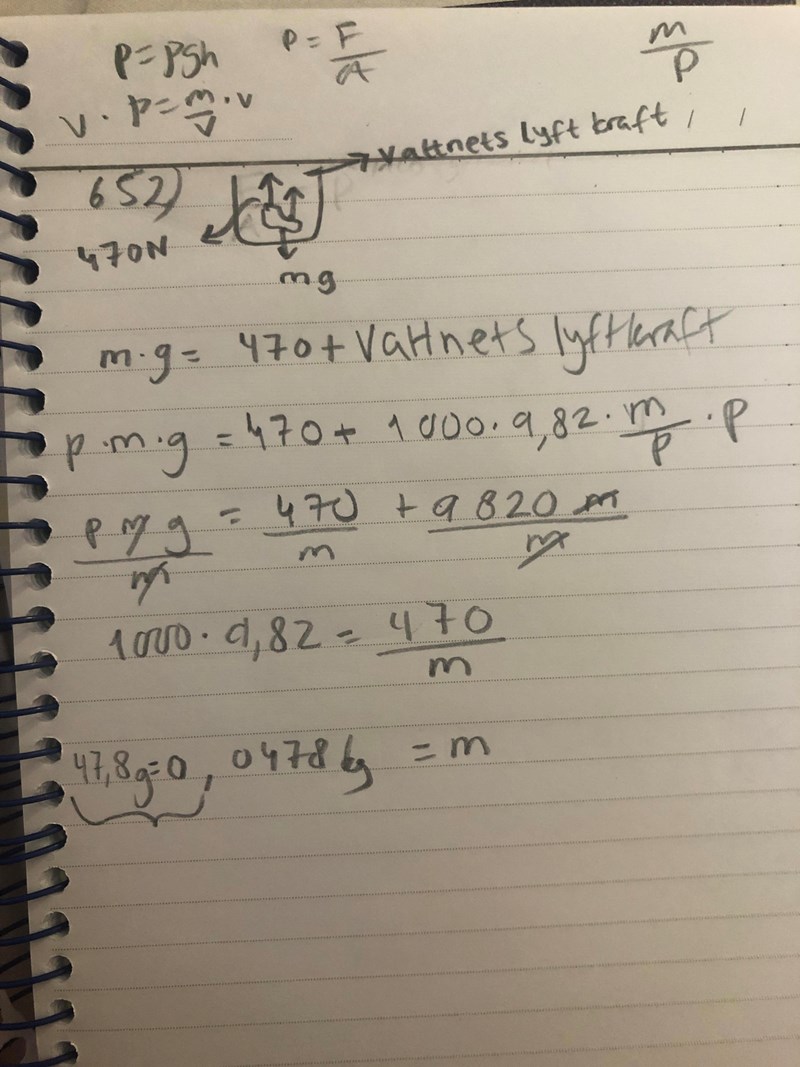 p = ρgh   P = F/A   m/ρ
V · ρ = m/V · V
→ Vattnets lyftkraft
652)
470N
mg
m·g = 470 + Vattnets lyftkraft
ρ·m·g = 470 + 1000·9,82·m/ρ ·ρ
ρmg/m = 470/m + 9820m/m
1000·9,82 = 470/m
47,8g=0,0478kg = m